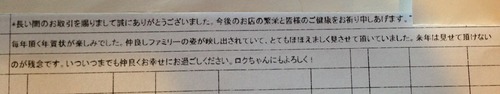 *長い間のお取引を賜りまして誠にありがとうございました。今後のお店の繁栄と皆様のご健康をお祈り申しあげます。
毎年頂く年賀状が楽しみでした。仲良しファミリーの姿が映し出されていて、とてもほほえましく見させて頂いていました。来年は見せて頂けない
のが残念です。いついつまでも仲良くお幸せにお過ごしください。ロクちゃんにもよろしく！